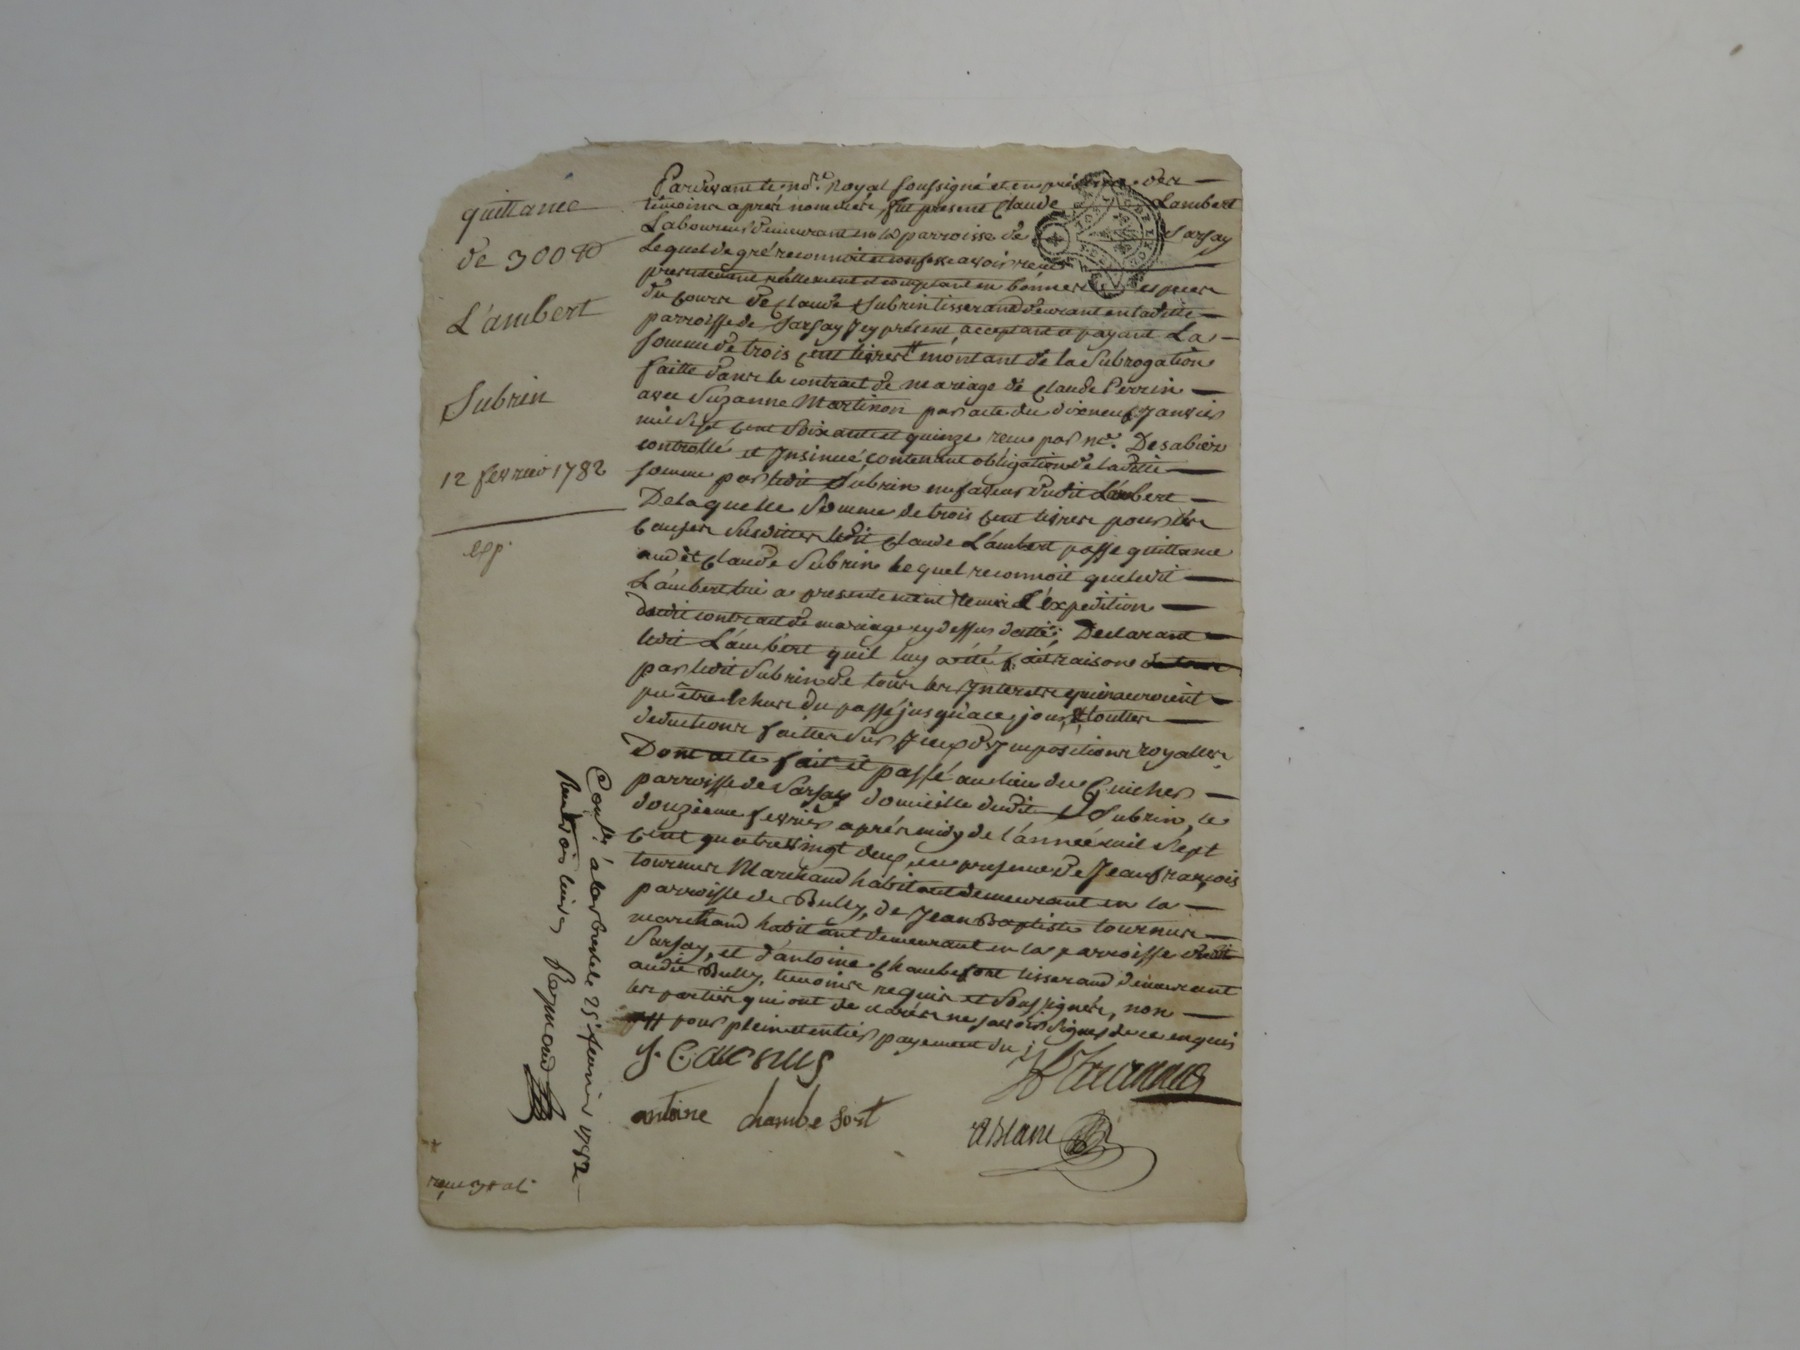 quittance
de 300 ₶
L'ambert
Subrin
12 fevrier 1782
exp.
Pardevant le no.re Royal soussigné et en présence des
témoins aprés nommés, fut present Claude Lambert
Laboureur demeurant en la parroisse de Sarsay
Lequel de gré reconnoit et confesse avoir reçu
presentement réellement et comptant en bonnes especes
du cours de Claude Subrin tisserand demeurant en laditte
parroisse de Sarsay Jcy présent acceptant et payant La
somme de trois cent livres # montant de la Subrogation
faitte dans le contract de mariage de Claude Perrin
avec Suzanne Martinon par acte du dixneuf Janvier
mil Sept cent Soixante et quinze recu par me. Desabier
controllé et Jnsinué contenant obligation de laditte
somme par ledit Subrin en faveur dudit L'ambert
De laquelle Somme de trois cent livres pour les
causes Susdittes ledit Claude L'ambert passe quittance
audit Claude Subrin lequel reconnoit que ledit
L'ambert lui a presentement remis L'expedition
dudit contract de mariage cy dessus datté; Declarant
ledit L'ambert quil luy a été fait raison
par ledit Subrin de tous les Jnterets qui auroient
pu être échus du passé jusqu'a ce jour, # touttes
deductions faittes sur Jceux des Jmpositions royalles.
Dont acte fait et passé au lieu du Cuicher
parroisse de Sarsay domicille dudit Subrin, le
douzieme fevrier aprés midy de l'année mil Sept
cent quatre vingt deux, en presence de Jean François
tournus Marchand habitant demeurant en la
parroisse de Bully, de Jean Baptiste tournus
marchand habitant demeurant en la parroisse dudit
Sarsay, et d'antoine Chambefort tisserand demeurant
audit Bully, temoins requis et Soussignés, non
les parties qui ont declaré ne savoir signer de ce enquis
# pour plein et entier payement du
antoine chambe fort
Con.lé a larbresle le 25 fevrier 1782
Raymond